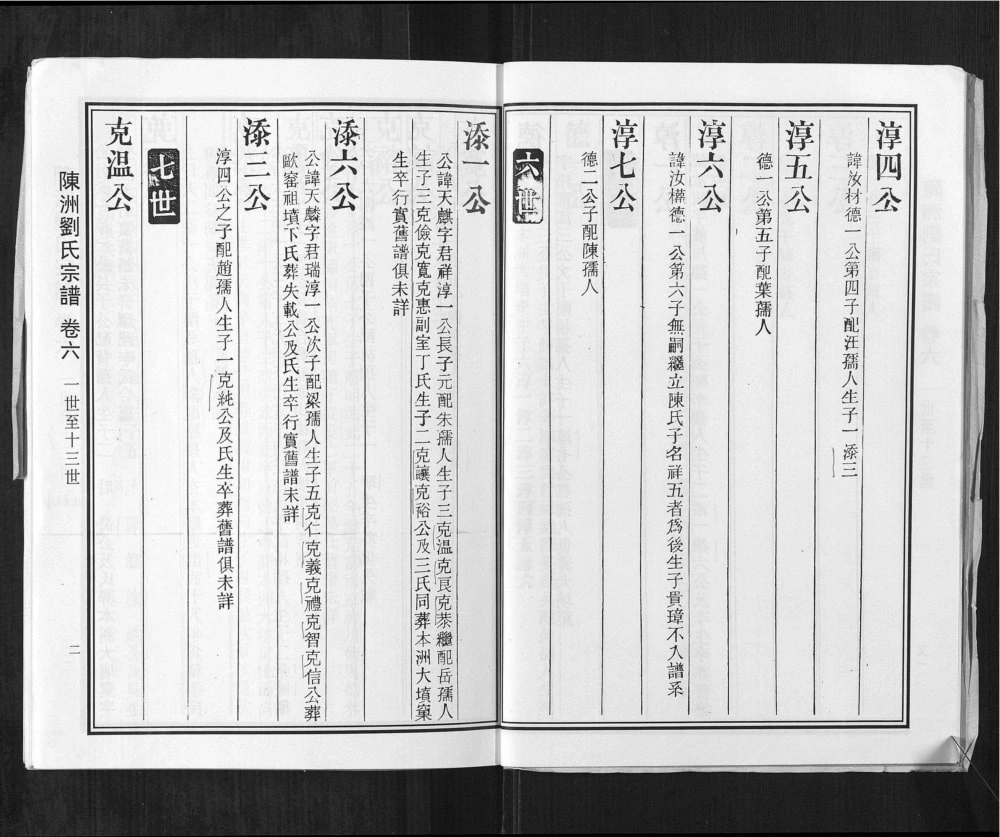 淳四公
諱汝材德一公第四子配汪孺人生子一添三
淳五公
德一公第五子配葉孺人
淳六公
諱汝權德一公第六子無嗣繼立陳氏子名祥五者爲後生子貴璋不入譜系
淳七公
德二公子配陳孺人
六世
添一公
公諱天麒字君祥淳一公長子元配朱孺人生子三克温克良克恭繼配岳孺人
生子三克儉克寬克惠副室丁氏生子二克讓克裕公及三氏同葬本洲大墳窠
生卒行實舊譜俱未詳
添六公
公諱天麟字君瑞淳一公次子配梁孺人生子五克仁克義克禮克智克信公葬
歐窑祖墳下氏葬失載公及氏生卒行實舊譜未詳
添三公
淳四公之子配趙孺人生子一克純公及氏生卒葬舊譜俱未詳
七世
克温公
陳洲劉氏宗譜 卷六 一世至十三世
二